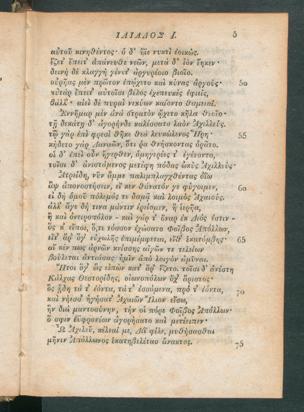 ΙΛΙΑΔΟΣ Ι. 5
αὐτοῦ κινηθέντος· ὁ δ' ἤϊε νυκτὶ ἐοικώς.
ἕζετ' ἔπειτ' ἀπάνευθε νεῶν, μετὰ δ' ἰὸν ἕηκεν·
δεινὴ δὲ κλαγγὴ γένετ' ἀργυρέοιο βιοῖο.
οὐρῆας μὲν πρῶτον ἐπῴχετο καὶ κύνας ἀργούς· 50
αὐτὰρ ἔπειτ' αὐτοῖσι βέλος ἐχεπευκὲς ἐφιείς,
βάλλ'· αἰεὶ δὲ πυραὶ νεκύων καίοντο θαμειαί.
Ἐννῆμαρ μὲν ἀνὰ στρατὸν ᾤχετο κῆλα θεοῖο·
τῇ δεκάτῃ δ' ἀγορήνδε καλέσσατο λαὸν Ἀχιλλεύς.
τῷ γὰρ ἐπὶ φρεσὶ θῆκε θεὰ λευκώλενος Ἥρη· 55
κήδετο γὰρ Δαναῶν, ὅτι ῥα θνήσκοντας ὁρᾶτο.
οἱ δ' ἐπεὶ οὖν ἤγερθεν, ὁμηγερέες τ' ἐγένοντο,
τοῖσι δ' ἀνιστάμενος μετέφη πόδας ὠκὺς Ἀχιλλεύς·
Ἀτρείδη, νῦν ἄμμε παλιμπλαγχθέντας ὀΐω
ἂψ ἀπονοστήσειν, εἴ κεν θάνατόν γε φύγοιμεν, 60
εἰ δὴ ὁμοῦ πόλεμός τε δαμᾷ καὶ λοιμὸς Ἀχαιούς.
ἀλλ' ἄγε δή τινα μάντιν ἐρείομεν, ἢ ἱερῆα,
ἢ καὶ ὀνειροπόλον - καὶ γάρ τ' ὄναρ ἐκ Διός ἐστιν -
ὅς κ' εἴποι, ὅ,τι τόσσον ἐχώσατο Φοῖβος Ἀπόλλων,
εἴτ' ἄρ' ὅγ' εὐχωλῆς ἐπιμέμφεται, εἴθ' ἑκατόμβης· 65
αἴ κέν πως ἀρνῶν κνίσσης αἰγῶν τε τελείων
βούλεται ἀντιάσας ἡμῖν ἀπὸ λοιγὸν ἀμῦναι.
Ἤτοι ὅγ' ὣς εἰπὼν κατ' ἄρ' ἕζετο. τοῖσι δ' ἀνέστη
Κάλχας Θεστορίδης, οἰωνοπόλων ὄχ' ἄριστος·
ὃς ᾔδη τά τ' ἐόντα, τά τ' ἐσσόμενα, πρό τ' ἐόντα, 70
καὶ νήεσσ' ἡγήσατ' Ἀχαιῶν Ἴλιον εἴσω,
ἣν διὰ μαντοσύνην, τήν οἱ πόρε Φοῖβος Ἀπόλλων·
ὅ σφιν ἐϋφρονέων ἀγορήσατο καὶ μετέειπεν·
Ὦ Ἀχιλεῦ, κέλεαί με, Διῒ φίλε, μυθήσασθαι
μῆνιν Ἀπόλλωνος ἑκατηβελέταο ἄνακτος. 75